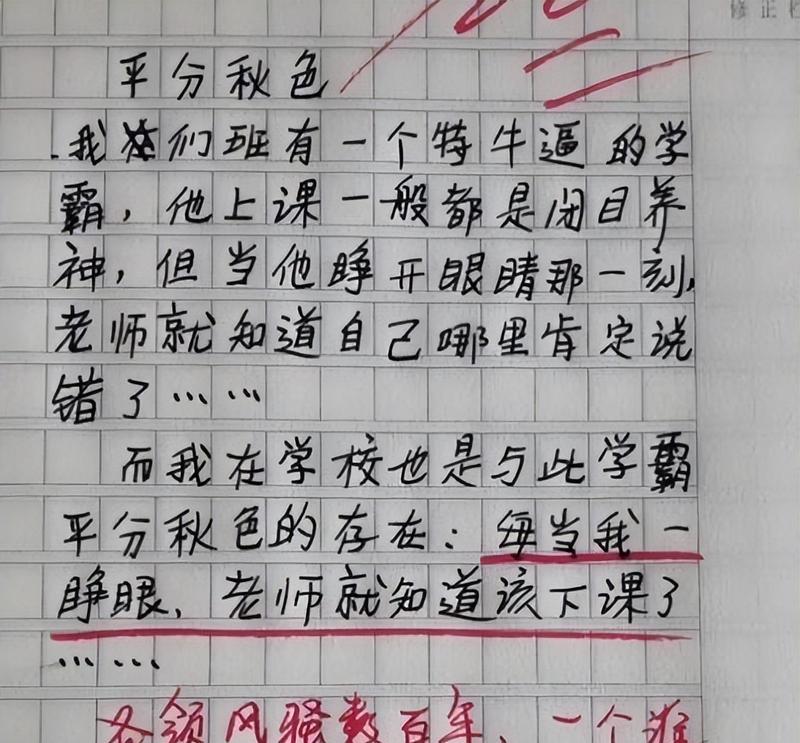 修正
平分秋色
我们班有一个特牛逼的学
霸，他上课一般都是闭目养
神，但当他睁开眼睛那一刻，
老师就知道自己哪里肯定说
错了……
而我在学校也是与此学霸
平分秋色的存在：每当我一
睁眼，老师就知道该下课了
……
各领风骚数百年，一个准